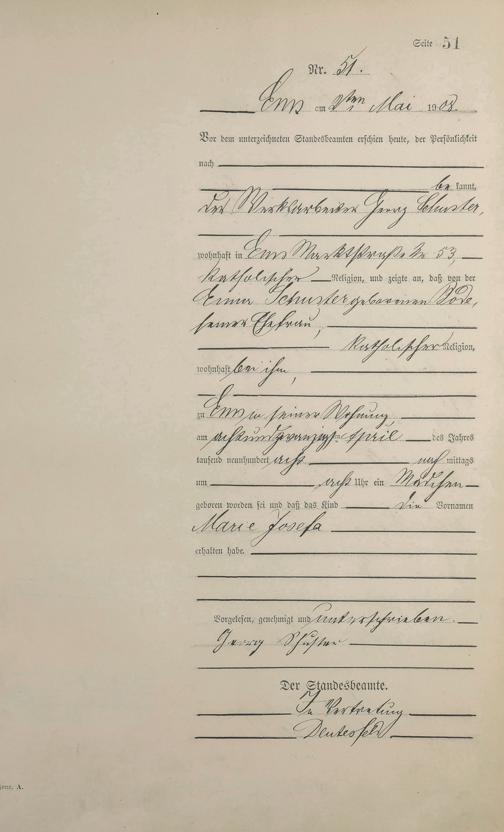 Seite 51
Nr. 51.
Ems am 2ten Mai 1908
Vor dem unterzeichneten Standesbeamten erschien heute, der Persönlichkeit
nach
be kannt,
der Werksarbeiter Georg Schuster,
wohnhaft in Ems Marktstraße Nr 53,
katholischer Religion, und zeigte an, daß von der
Emma Schuster geborenen Bode,
seiner Ehefrau,
katholischer Religion,
wohnhaft bei ihm,
zu Ems in seiner Wohnung
am achtundzwanzigsten April des Jahres
tausend neunhundert acht nach mittags
um acht Uhr ein Mädchen
geboren worden sei und daß das Kind die Vornamen
Marie Josefa
erhalten habe.
Vorgelesen, genehmigt und unterschrieben.
Georg Schuster
Der Standesbeamte.
In Vertretung